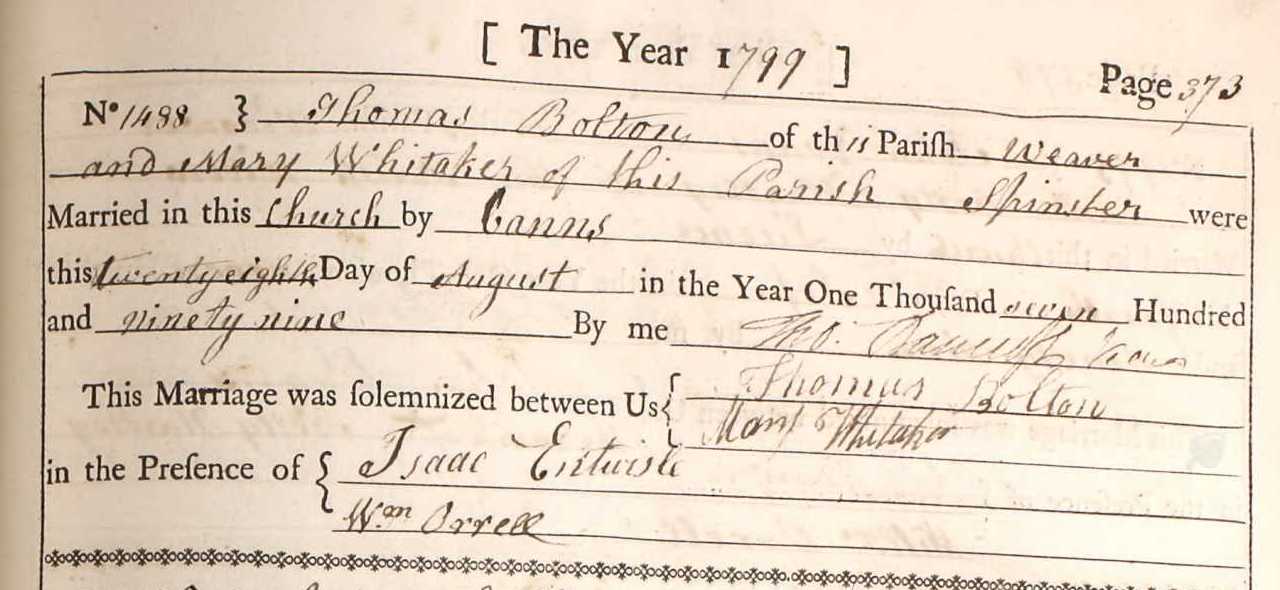 [ The Year 1799 ]
Page 373
No 1488 } Thomas Bolton of this Pariſh Weaver
and Mary Whitaker of this Parish Spinster were
Married in this Church by Banns
this twenty eighth Day of August in the Year One Thouſand seven Hundred
and ninety nine By me Tho. Bancroft Vicar
This Marriage was ſolemnized between Us { Thomas Bolton
Mary Whitaker
in the Preſence of { Isaac Entwisle
Wm Orrell